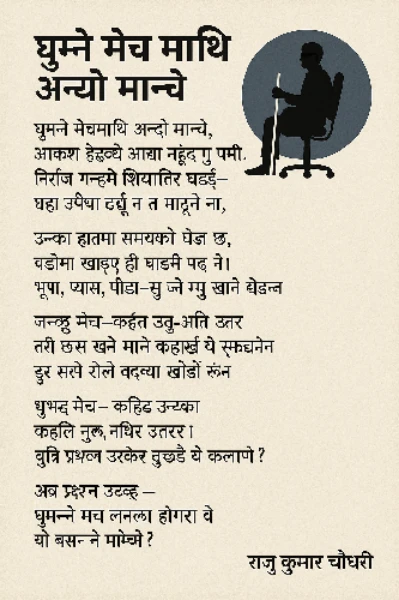 घुम्ने मेच माथि
अन्यो मान्चे
घुमने मेचमाथि अन्दो मान्चे,
आकश हेद्वव्धे आद्या नहूदगु पमी.
निर्राज गन्हमे शियातिर घडई–
घहा उपेधा टर्द्यू न त माटूने ना,
उन्का हातमा समयको घेज छ,
वडोमा खाड्ए ही घाडमै पढ् ने।
भूपा, प्यास, पीडा–सु ज्ने खाने
मेच–कर्हत उतु-अति उतर
तरी छस खने माने कहार्ख ये
डुर सत्ये रोले वदव्या खोडों रून
मेच– कहिढ उन्य्का
कहलि नुल, नथिर उतरर।
वुत्रि उरकेर तुछडै ये कलाणे?
अब प्रश्रन उटव्ह –
घुमन्ने मच लनला होगरा वे
यो बसन्ने माम्च्वे?
राजु कुमार चौधरी